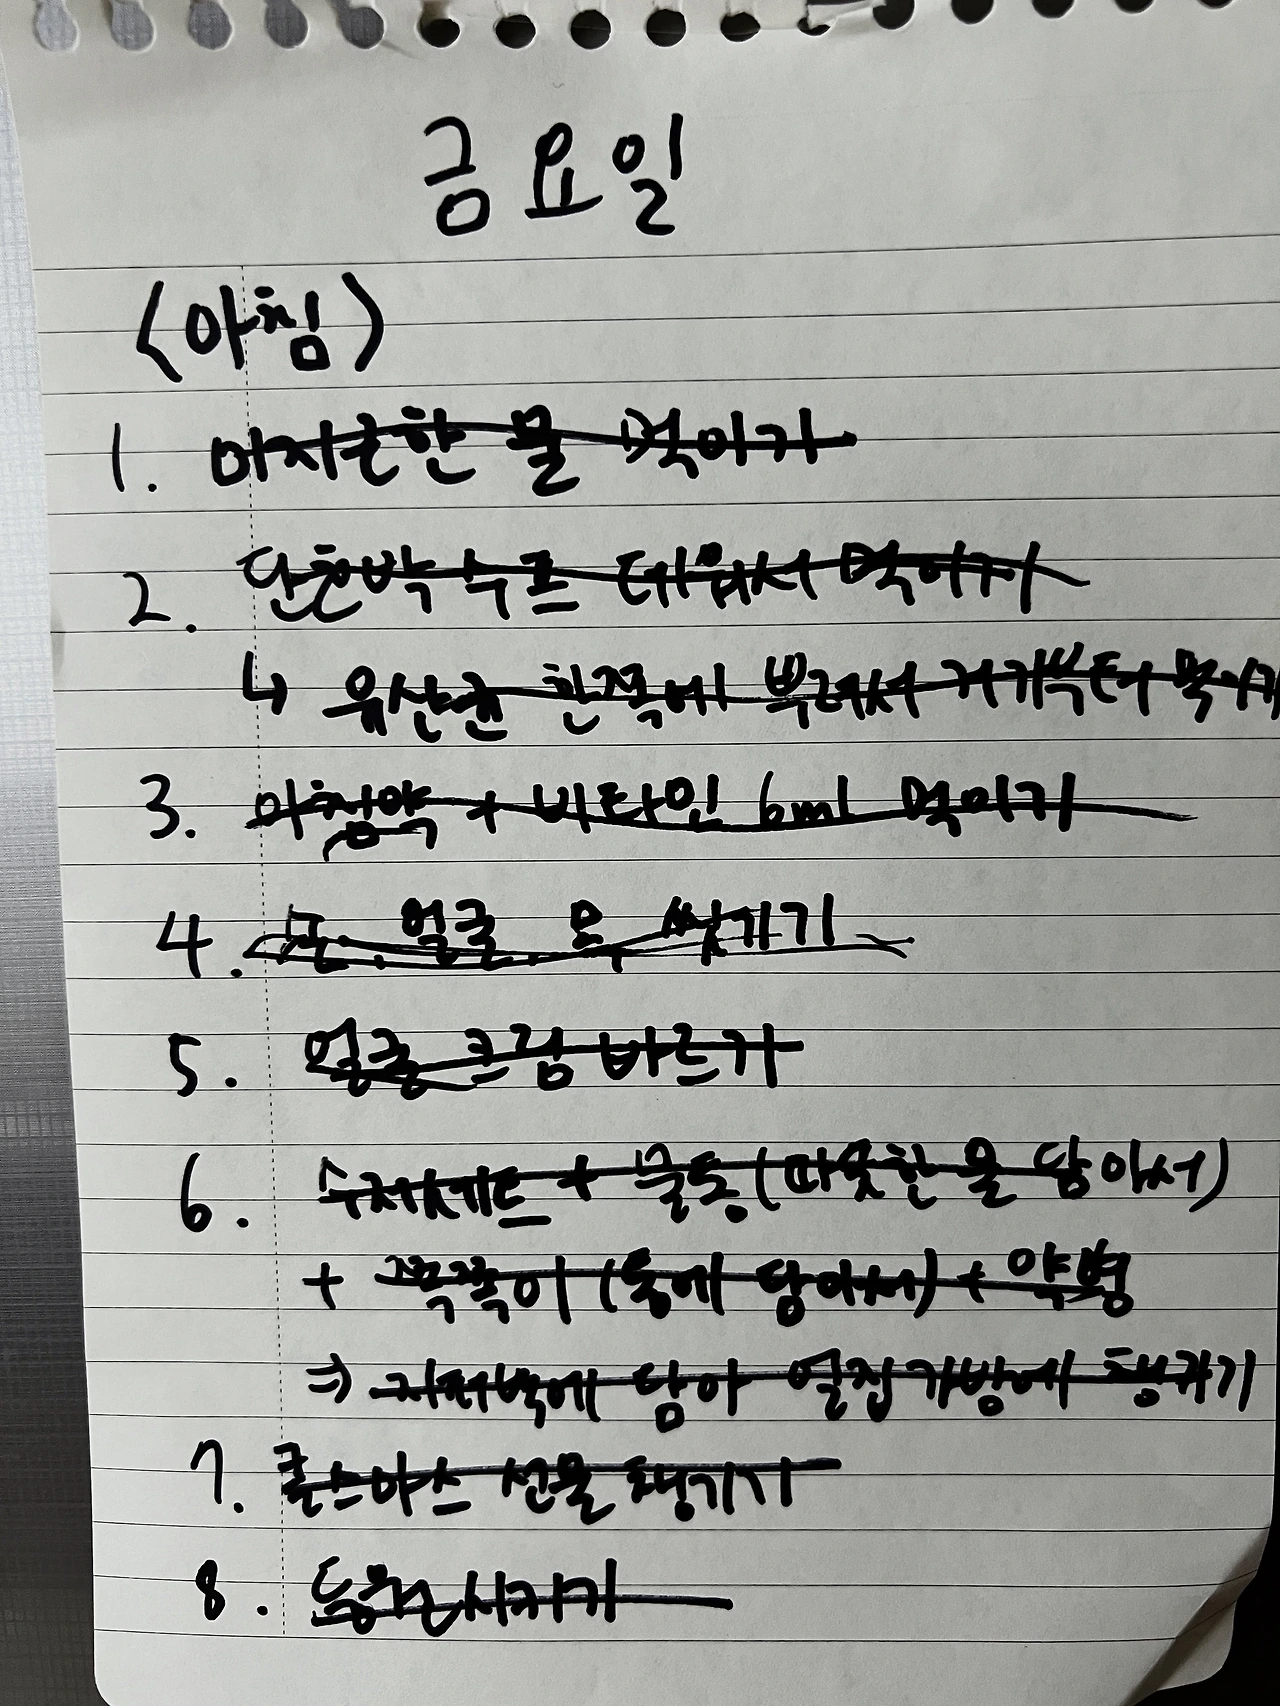 금요일
<아침>
1. 미지근한 물 먹이기
2. 단호박 수프 데워서 먹이기
↳ 유산균 한쪽에 뿌려서 거기부터 먹이기
3. 아침약 + 비타민 6ml 먹이기
4. 손, 얼굴, 목 씻기기
5. 얼굴 크림 바르기
6. 수저세트 + 물통 (따뜻한 물 담아서)
+ 쪽쪽이 (통에 담아서) + 약병
⇒ 지퍼백에 담아 얼집 가방에 챙기기
7. 클스마스 선물 챙기기
8. 등원시키기